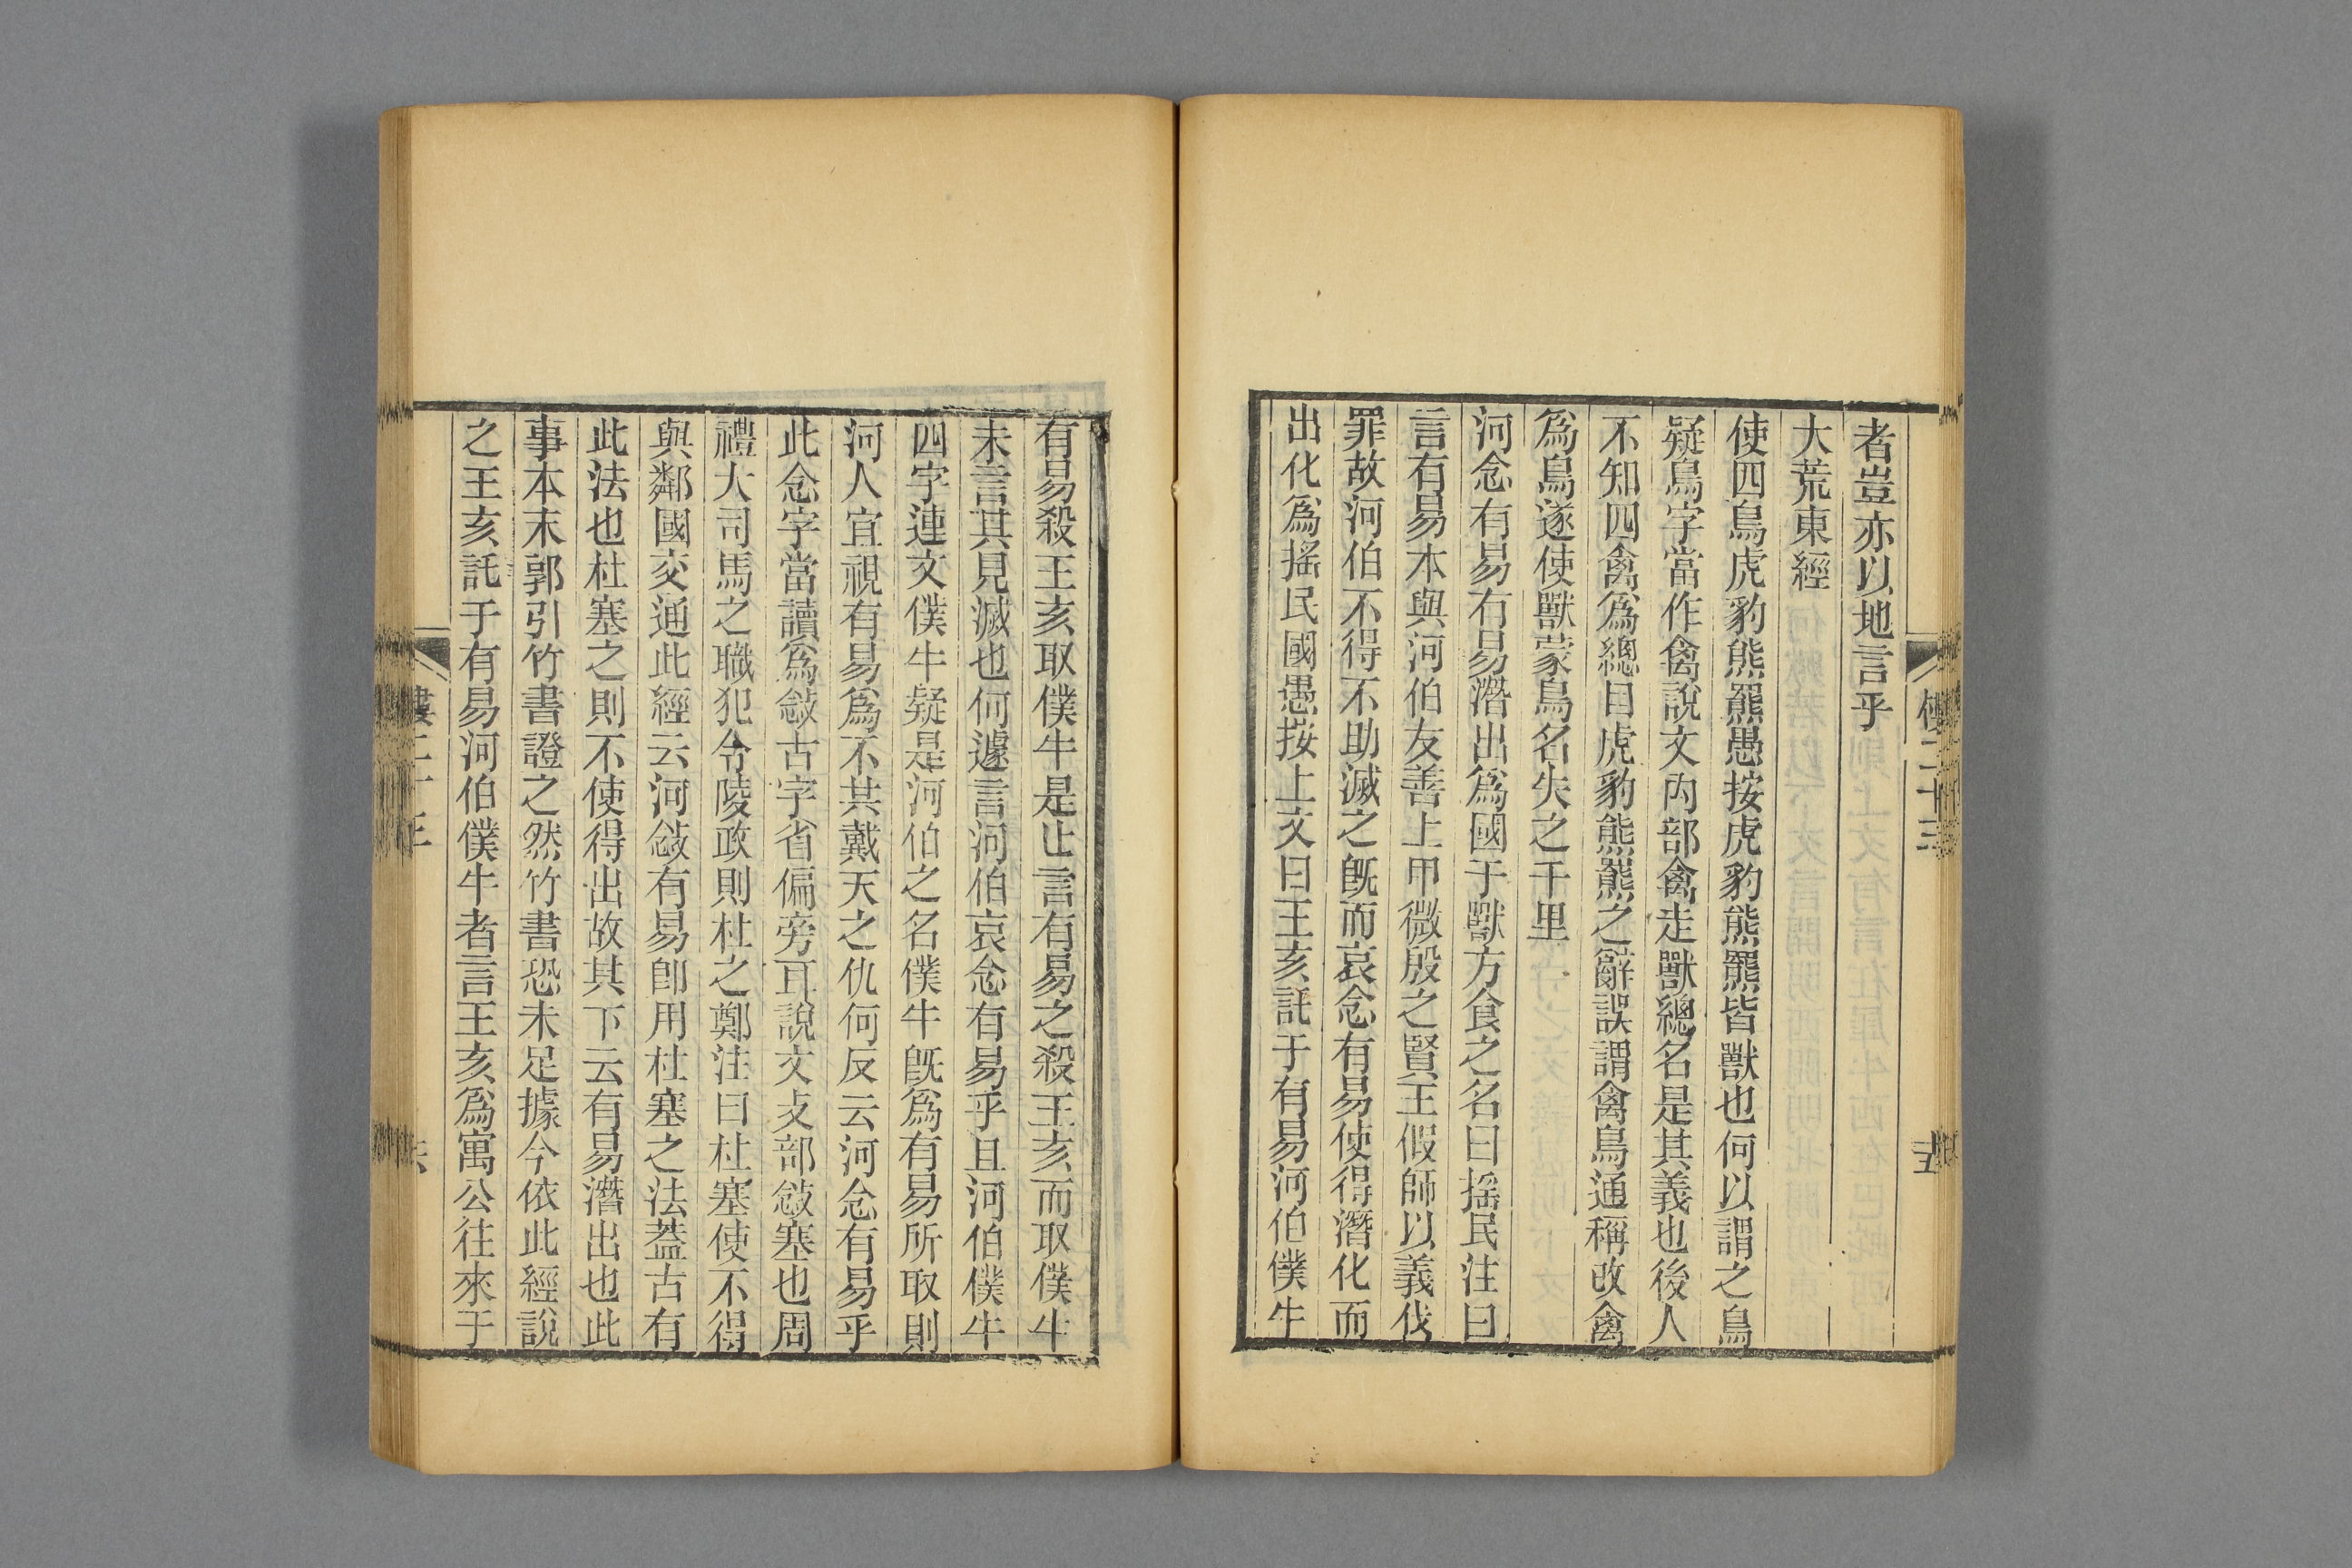 者豈亦以地言乎
大荒東經
使四鳥虎豹熊羆愚按虎豹熊羆皆獸也何以謂之鳥
疑鳥字當作禽說文禸部禽走獸總名是其義也後人
不知四禽爲總目虎豹熊羆之辭誤謂禽鳥通稱改禽
爲鳥遂使獸蒙鳥名失之千里
河念有易有易潛出爲國于獸方食之名曰搖民注曰
言有易本與河伯友善上甲微殷之賢王假師以義伐
罪故河伯不得不助滅之旣而哀念有易使得潛化而
出化爲搖民國愚按上文曰王亥託于有易河伯僕牛
有易殺王亥取僕牛是止言有易之殺王亥而取僕牛
未言其見滅也何遽言河伯哀念有易乎且河伯僕牛
四字連文僕牛疑是河伯之名僕牛旣爲有易所取則
河人宜視有易爲不共戴天之仇何反云河念有易乎
此念字當讀爲敜古字省偏旁耳說文攴部敜塞也周
禮大司馬之職犯令陵政則杜之鄭注曰杜塞使不得
與鄰國交通此經云河敜有易卽用杜塞之法蓋古有
此法也杜塞之則不使得出故其下云有易潛出也此
事本末郭引竹書證之然竹書恐未足據今依此經說
之王亥託于有易河伯僕牛者言王亥爲寓公往來于